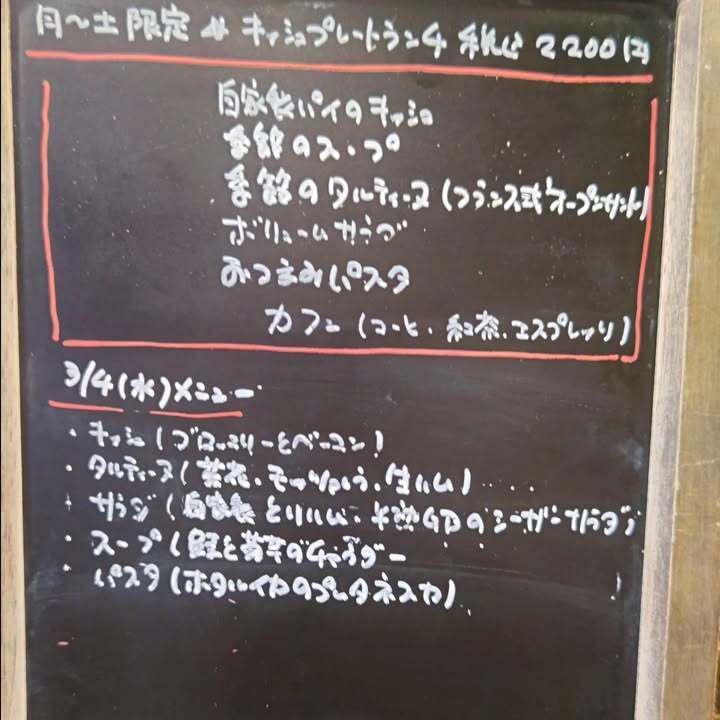 月〜土 限定 キッシュプレートランチ 税込 2200円
自家製パイのキッシュ
季節のスープ
季節のタルティーヌ (フランス式オープンサンド)
ボリュームサラダ
おつまみパスタ
カフェ (コーヒー・紅茶・エスプレッソ)
3/4(水)メニュー
・キッシュ (ブロッコリーとベーコン)
・タルティーヌ (菜花・モッツァレラ・生ハム)
・サラダ (自家製とりハム・半熟卵のシーザーサラダ)
・スープ (鮭と のチャウダー
・パスタ (ホタルイカのプッタネスカ)